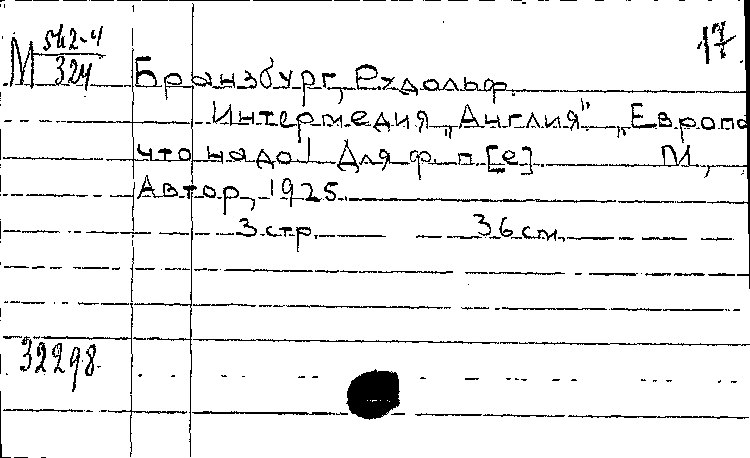 17.
М 542-4
324
Бранзбург, Рудольф.
Интермедия „Англия" „Европа
что надо! Для ф. п. [е] М.,
Автор, 1925.
3 стр. 36 см.
32298